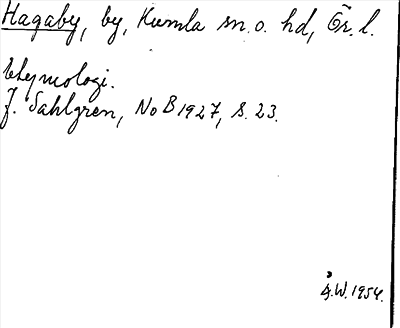 Hagaby, by, Kumla sn. o. hd, Ör. l.
Etymologi.
J. Sahlgren, NoB 1927, s. 23.
Å.W. 1954.